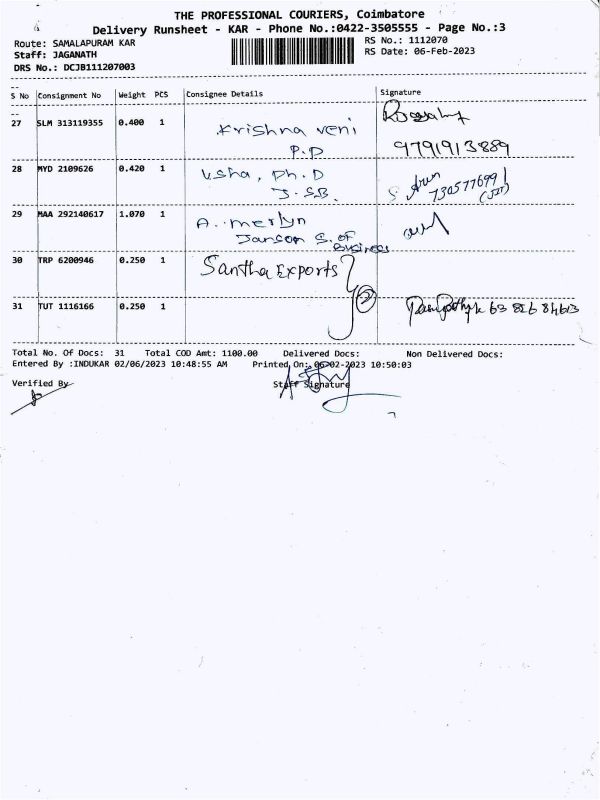 THE PROFESSIONAL COURIERS, Coimbatore
Delivery Runsheet - KAR - Phone No.:0422-3505555 - Page No.:3
Route: SAMALAPURAM KAR
RS No.: 1112070
Staff: JAGANATH
RS Date: 06-Feb-2023
DRS No.: DCJB111207003
S No Consignment No Weight PCS Consignee Details Signature
27 SLM 313119355 0.400 1 Krishna veni
P.D 9791913889
28 MYD 2109626 0.420 1 Usha, Ph.D S. Arun
J.SB. 7305776991
29 MAA 292140617 1.070 1 A. Merlyn
Janson S. of
Business
30 TRP 6200946 0.250 1 Santha Exports
2
31 TUT 1116166 0.250 1 63 826 84613
Total No. Of Docs: 31 Total COD Amt: 1100.00 Delivered Docs: Non Delivered Docs:
Entered By :INDUKAR 02/06/2023 10:48:55 AM Printed On: 06-02-2023 10:50:03
Verified By Staff Signature